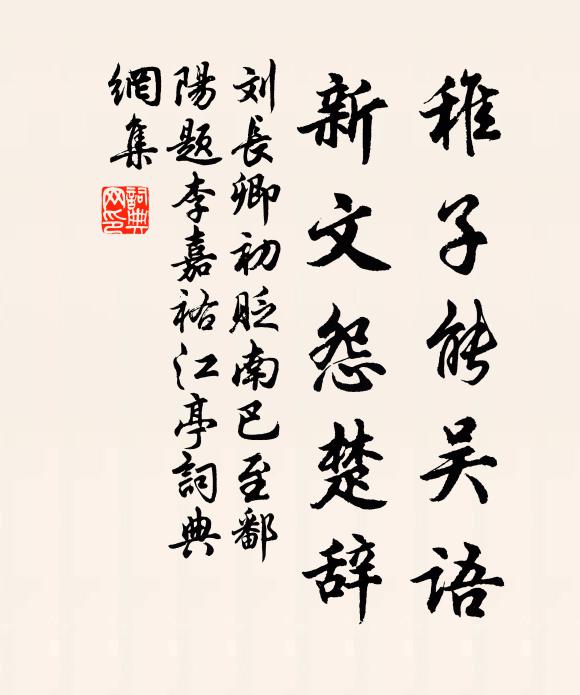 稚子能吴语
新文怨楚辞
刘长卿初贬南巴至鄱
陽题李嘉祐江亭詞典
網集
詞典网印